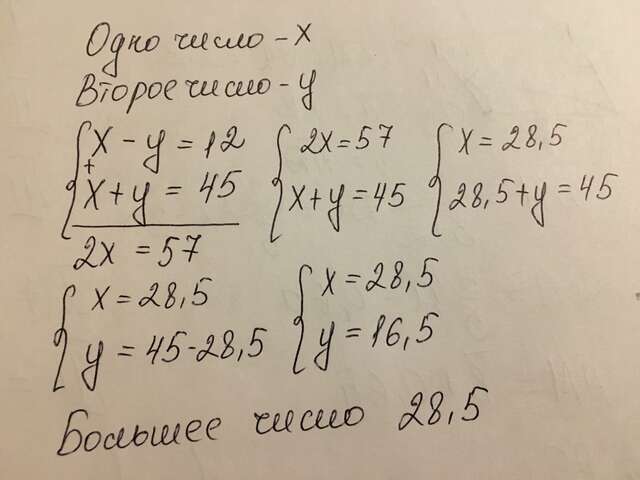 Одно число - x
Второе число - y
x - y = 12
+
x + y = 45
2x = 57
2x = 57
x + y = 45
x = 28,5
28,5 + y = 45
x = 28,5
y = 45 - 28,5
x = 28,5
y = 16,5
Большее число 28,5